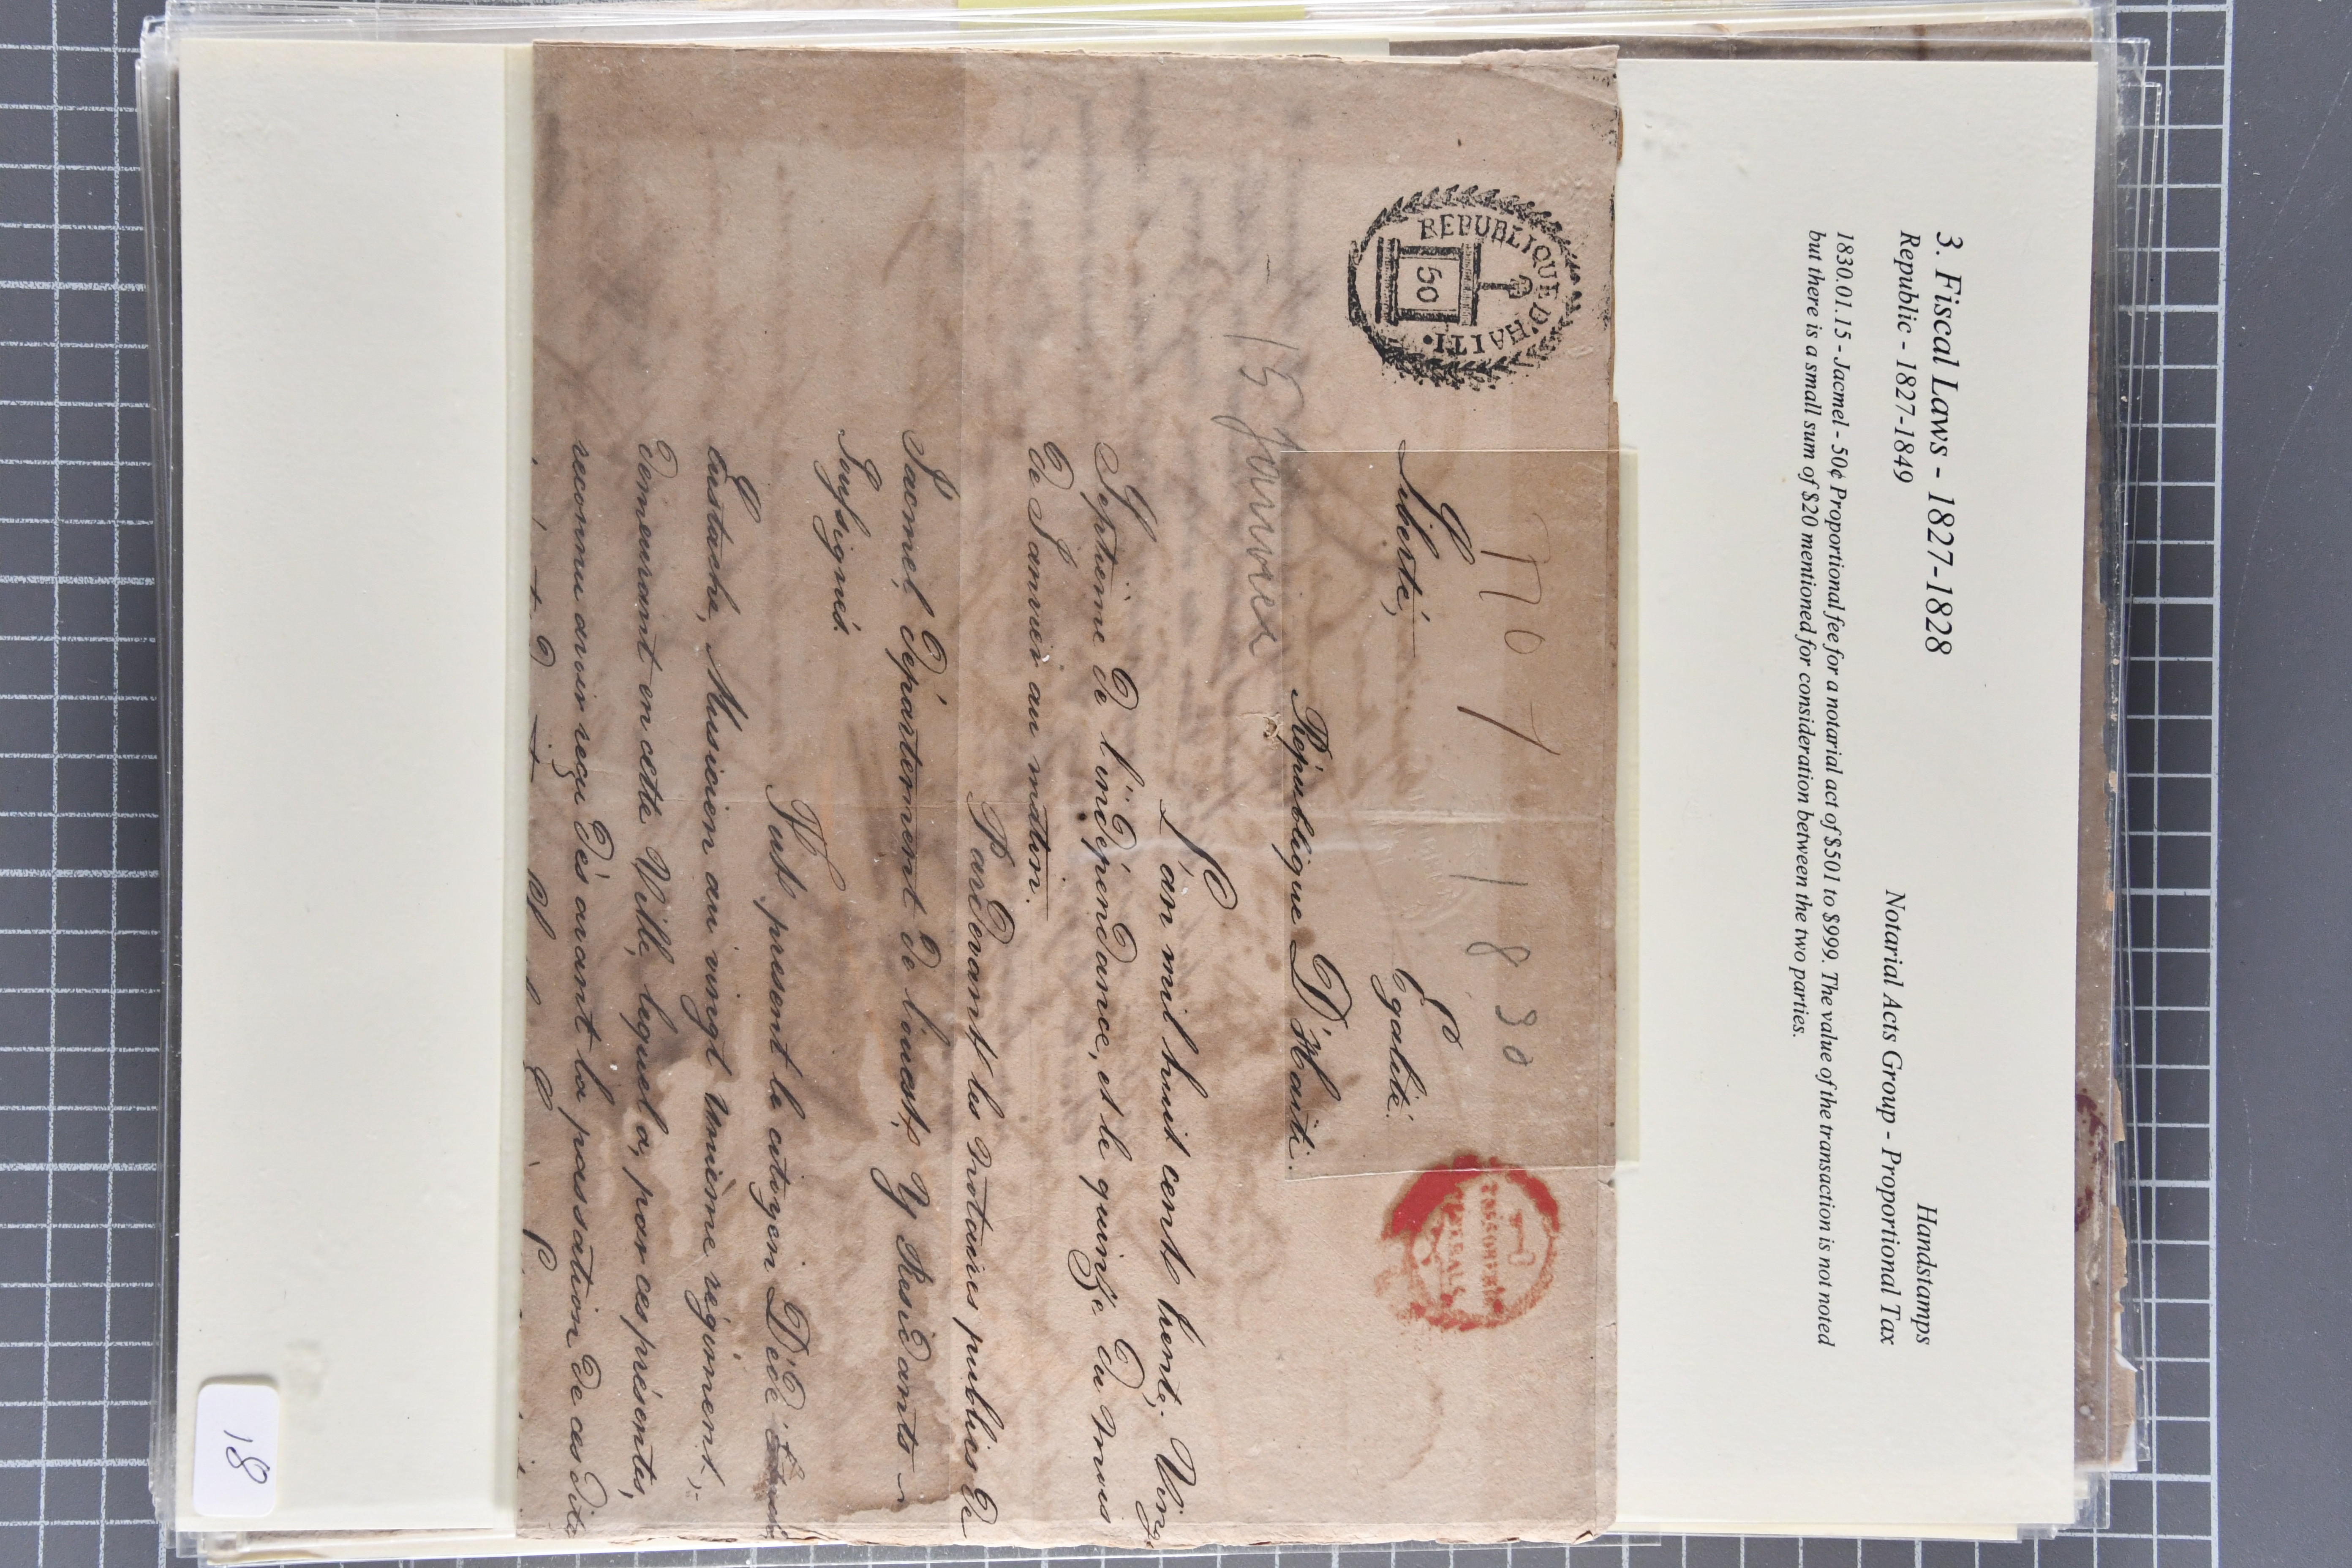 3. Fiscal Laws - 1827-1828
Handstamps
Republic - 1827-1849
Notarial Acts Group - Proportional Tax
1830.01.15 - Jacmel - 50¢ Proportional fee for a notarial act of $501 to $999. The value of the transaction is not noted
but there is a small sum of $20 mentioned for consideration between the two parties.
REPUBLIQUE D'HAITI
50
1830
Liberté,
Egalité.
République D'Haïti.
15 Janvier
L'an mil huit cent trente. Vingt
Septième de l'indépendance, et le quinze du mois
de Janvier au matin.
Pardevant les notaires publics de
Jacmel, Département de l'ouest, y Residants
Soussignés.
Fut présent le citoyen Dédé
Eustache, Musicien au vingt unième régiment,
demeurant en cette Ville, lequel a, par ces présentes,
reconnu avoir reçu dès avant la passation de ces dites
18